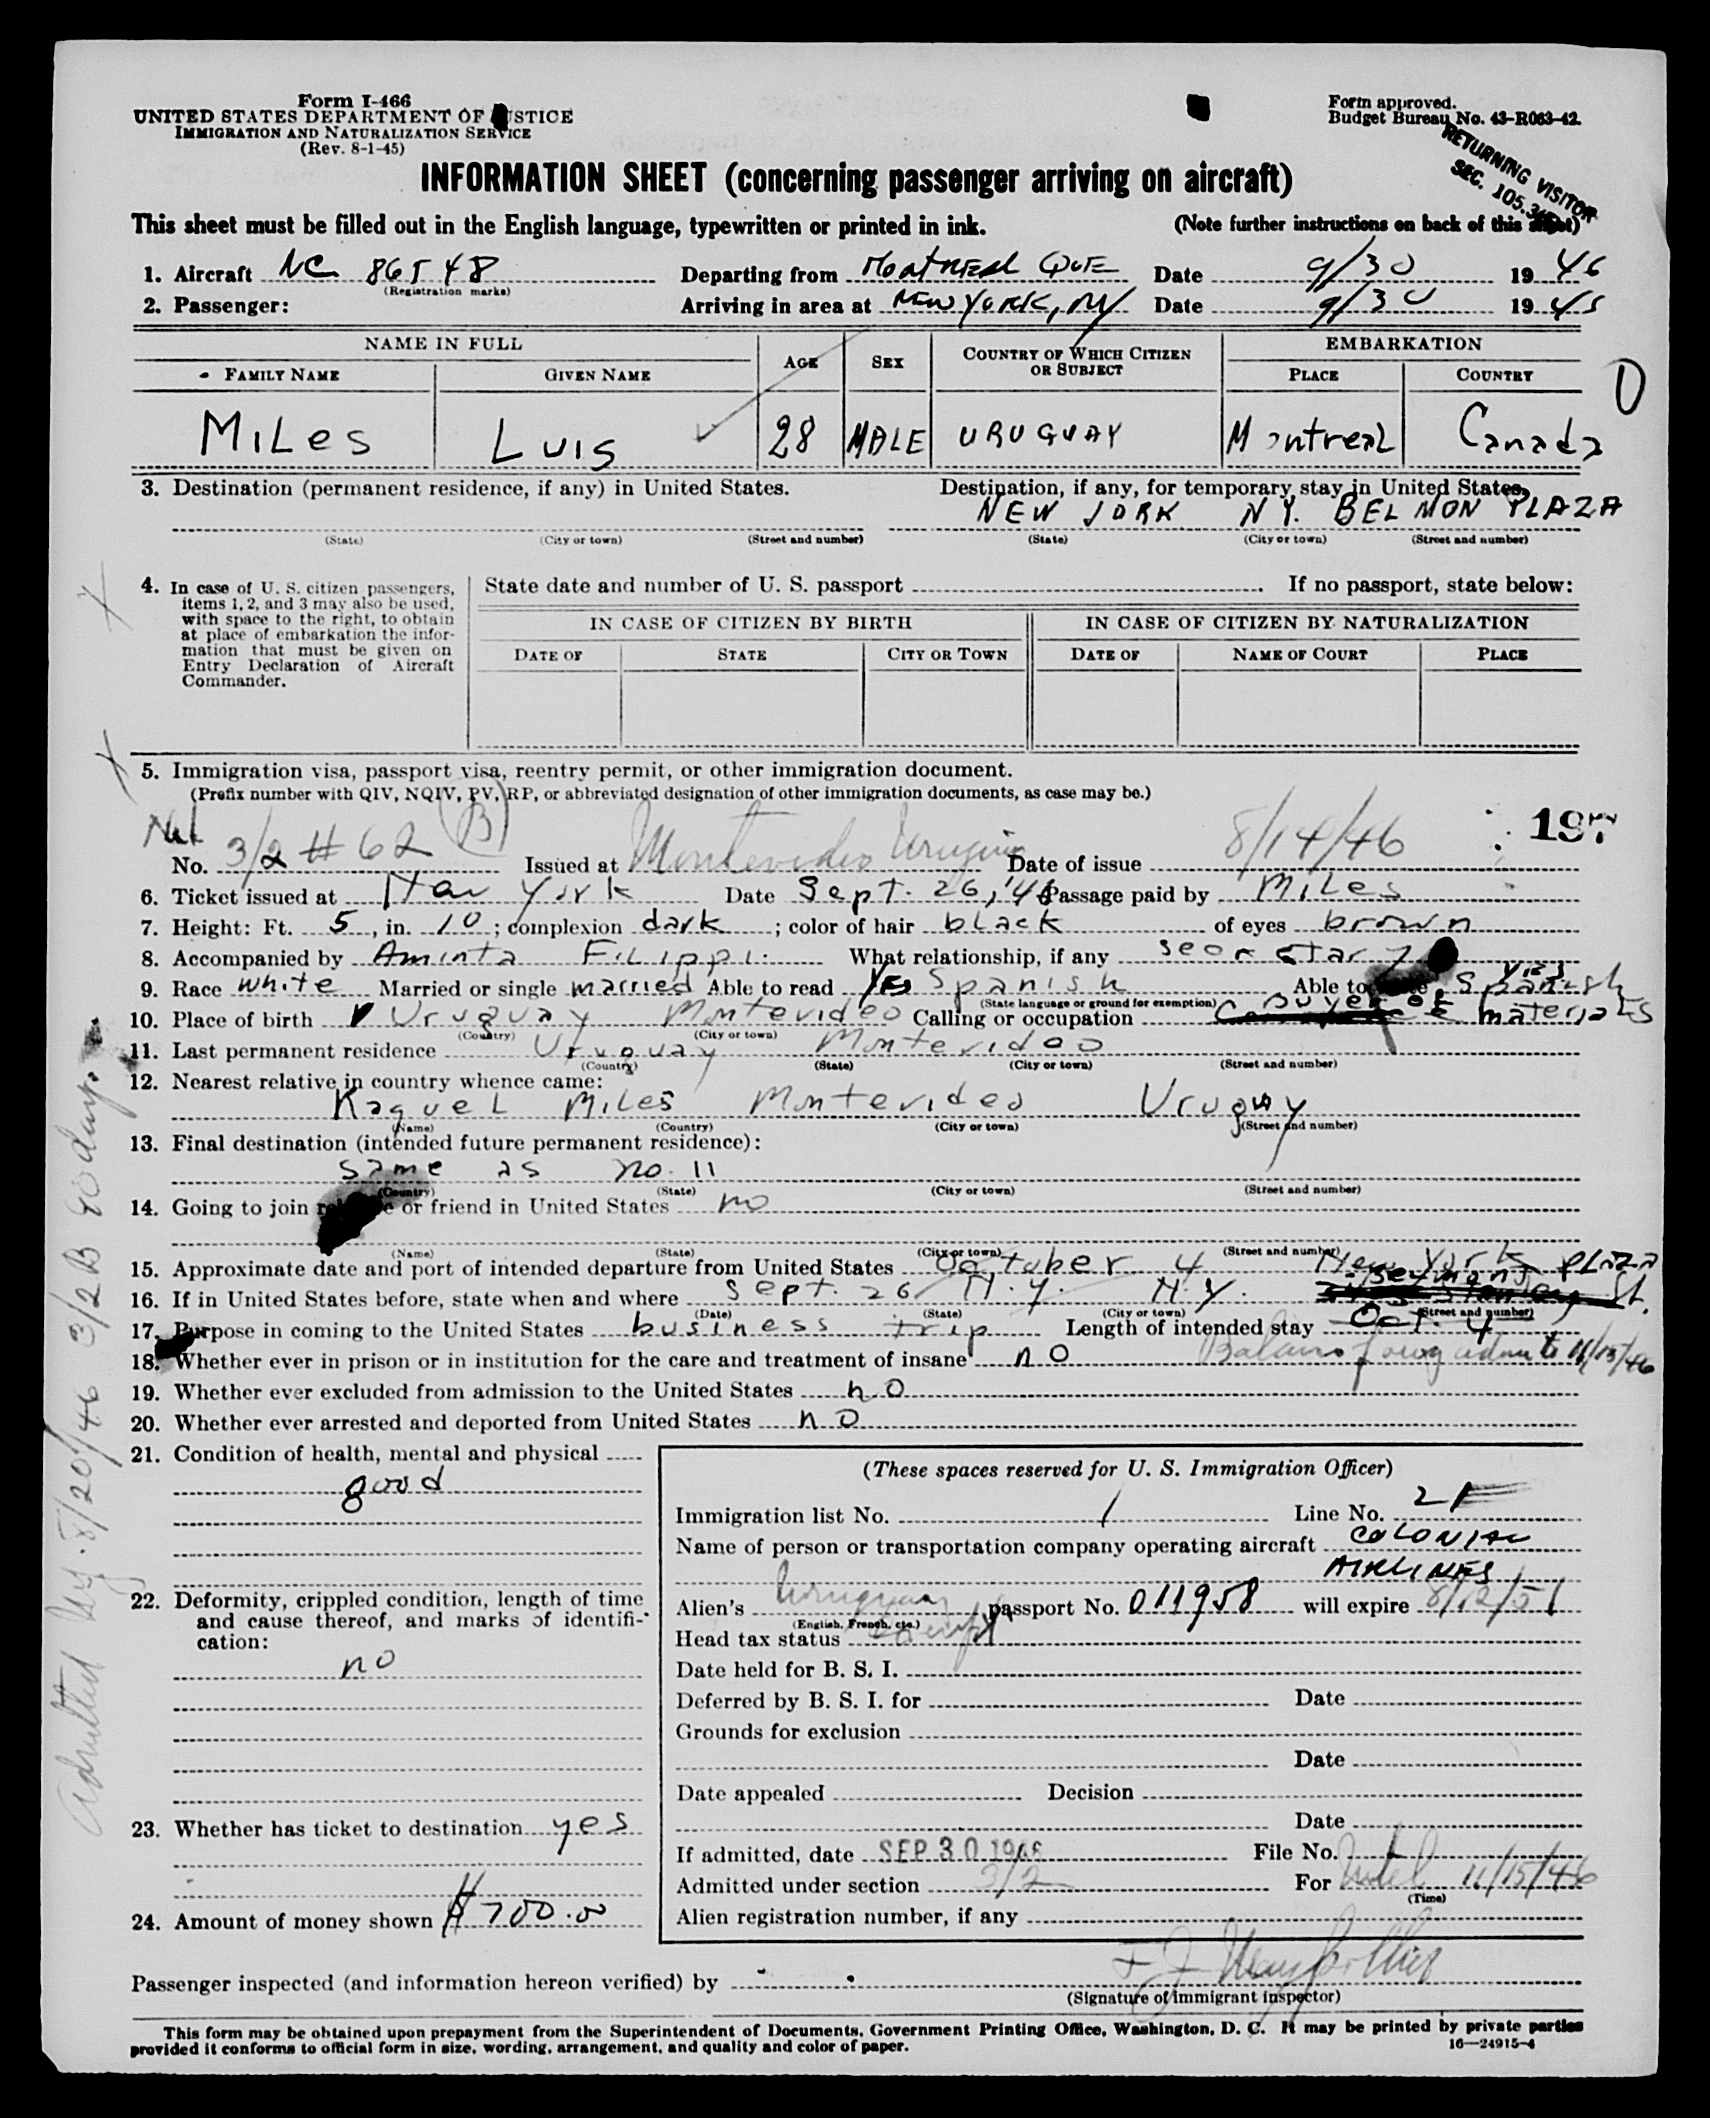 Form I-466
UNITED STATES DEPARTMENT OF JUSTICE
IMMIGRATION AND NATURALIZATION SERVICE
(Rev. 8-1-45)
Form approved.
Budget Bureau No. 43-R063-42.
RETURNING VISITOR
SEC. 105.3
INFORMATION SHEET (concerning passenger arriving on aircraft)
This sheet must be filled out in the English language, typewritten or printed in ink. (Note further instructions on back of this sheet)
1. Aircraft NC 86548 Departing from Montreal Que Date 9/30 1946
(Registration marks)
2. Passenger: Arriving in area at New York, NY Date 9/30 1945
NAME IN FULL AGE SEX COUNTRY OF WHICH CITIZEN OR SUBJECT EMBARKATION
FAMILY NAME GIVEN NAME PLACE COUNTRY
MiLes Luis 28 MALE URUGUAY MontreaL Canada
3. Destination (permanent residence, if any) in United States. Destination, if any, for temporary stay in United States.
NEW JORK NY. BELMON PLAZA
(State) (City or town) (Street and number) (State) (City or town) (Street and number)
4. In case of U. S. citizen passengers, items 1, 2, and 3 may also be used, with space to the right, to obtain at place of embarkation the information that must be given on Entry Declaration of Aircraft Commander.
State date and number of U. S. passport If no passport, state below:
IN CASE OF CITIZEN BY BIRTH IN CASE OF CITIZEN BY NATURALIZATION
DATE OF STATE CITY OR TOWN DATE OF NAME OF COURT PLACE
5. Immigration visa, passport visa, reentry permit, or other immigration document.
(Prefix number with QIV, NQIV, PV, RP, or abbreviated designation of other immigration documents, as case may be.)
197
No. 3/2 # 62 (B) Issued at Montevideo Uruguay Date of issue 8/14/46
6. Ticket issued at New York Date Sept. 26, '46 Passage paid by MiLes
7. Height: Ft. 5, in. 10; complexion dark; color of hair bLack of eyes brown
8. Accompanied by Aminta FiLippi. What relationship, if any secretary
9. Race white Married or single married Able to read Yes Spanish Able to write yes Spanish
(State language or ground for exemption)
10. Place of birth Uruguay Montevideo Calling or occupation Buyer of materiaLs
(Country) (City or town)
11. Last permanent residence Uruguay Montevideo
(Country) (State) (City or town) (Street and number)
12. Nearest relative in country whence came:
RaqueL MiLes Montevideo Uruguay
(Name) (Country) (City or town) (Street and number)
13. Final destination (intended future permanent residence):
same as no. 11
(Country) (State) (City or town) (Street and number)
14. Going to join relative or friend in United States no
(Name) (State) (City or town) (Street and number)
15. Approximate date and port of intended departure from United States October 4 New York
16. If in United States before, state when and where Sept. 26 N.Y. N.Y. PLAZA
(Date) (State) (City or town) (Street and number)
17. Purpose in coming to the United States business trip Length of intended stay Oct. 4
18. Whether ever in prison or in institution for the care and treatment of insane no
to 11/15/46
19. Whether ever excluded from admission to the United States no
20. Whether ever arrested and deported from United States no
21. Condition of health, mental and physical
good
22. Deformity, crippled condition, length of time and cause thereof, and marks of identification:
no
23. Whether has ticket to destination yes
24. Amount of money shown $ 700.00
(These spaces reserved for U. S. Immigration Officer)
Immigration list No. 1 Line No. 21
Name of person or transportation company operating aircraft COLONIAL
AIRLINES
Alien's Uruguay passport No. 011958 will expire 8/12/51
(English, French, etc.)
Head tax status Exempt
Date held for B. S. I.
Deferred by B. S. I. for Date
Grounds for exclusion
Date
Date appealed Decision
Date
If admitted, date SEP 30 1946 File No.
Admitted under section 3/2 For Until 11/15/46
(Time)
Alien registration number, if any
Passenger inspected (and information hereon verified) by
(Signature of immigrant inspector)
This form may be obtained upon prepayment from the Superintendent of Documents, Government Printing Office, Washington, D. C. It may be printed by private parties
provided it conforms to official form in size, wording, arrangement, and quality and color of paper.
16—24915-4
Admitted NY. 8/20/46 3/2 B 90 days.